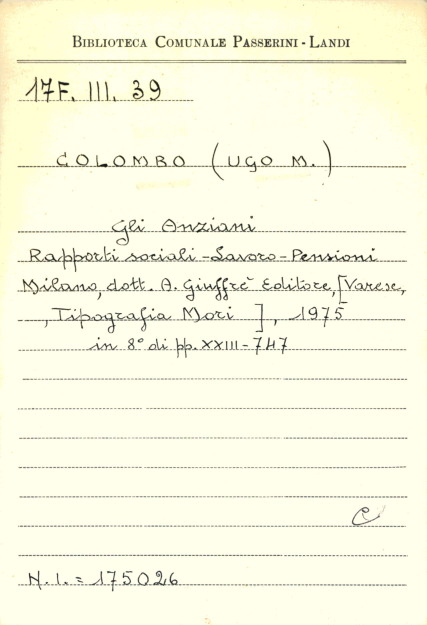 BIBLIOTECA COMUNALE PASSERINI - LANDI
17F. III. 39
COLOMBO (UGO M.)
Gli Anziani
Rapporti sociali - Lavoro - Pensioni
Milano, dott. A. Giuffrè Editore, [Varese,
, Tipografia Mori ], 1975
in 8° di pp. XXIII - 747
C
N. I. = 175026